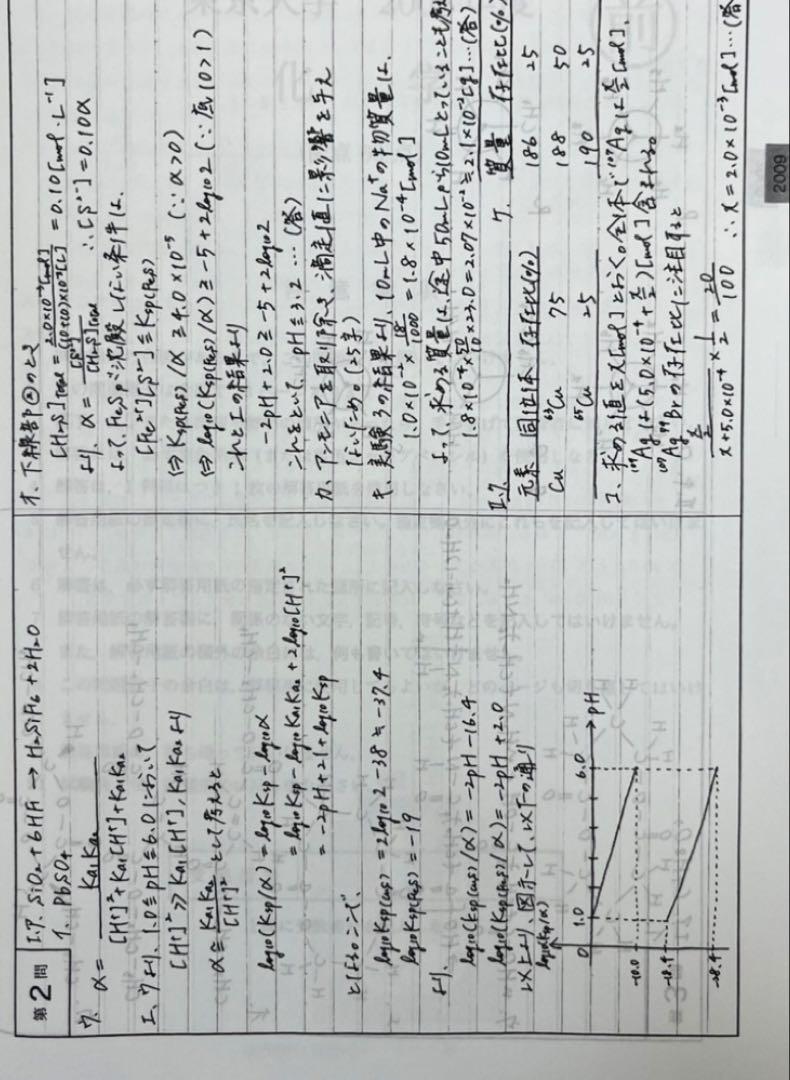 第2問
I.ア. SiO₂ + 6HF → H₂SiF₆ + 2H₂O
イ. PbSO₄
ウ. α = Ka₁Ka₂ / [H⁺]² + Ka₁[H⁺] + Ka₁Ka₂
エ. ウより、1.0 ≦ pH ≦ 6.0において
[H⁺]² ≫ Ka₁[H⁺], Ka₁Ka₂より
α ≒ Ka₁Ka₂ / [H⁺]² として考えると
log₁₀(Ksp/α) = log₁₀Ksp - log₁₀α
= log₁₀Ksp - log₁₀Ka₁Ka₂ + 2log₁₀[H⁺]²
= -2pH + 21 + log₁₀Ksp
となる。ここで、
log₁₀Ksp(CuS) = 2log₁₀2 - 38 ≒ -37.4
log₁₀Ksp(FeS) = -19
より、
log₁₀(Ksp(CuS)/α) = -2pH - 16.4
log₁₀(Ksp(FeS)/α) = -2pH + 2.0
以上より、図示して、以下の通り
log₁₀(Ksp/α)
0 1.0 6.0 → pH
-10.0
-18.4
-28.4
オ. 下線部④のとき
[H₂S]total = 2.0×10⁻³[mol] / (10+10)×10⁻³[L] = 0.10[mol・L⁻¹]
より、α = [S²⁻] / [H₂S]total ∴ [S²⁻] = 0.10α
よって、FeSが沈殿しない条件は、
[Fe²⁺][S²⁻] ≦ Ksp(FeS)
⇔ Ksp(FeS)/α ≧ 4.0×10⁻⁵ (∵ α>0)
⇔ log₁₀(Ksp(FeS)/α) ≧ -5 + 2log₁₀2 (∵ 底10>1)
これとエの結果より
-2pH + 2.0 ≧ -5 + 2log₁₀2
これをといて、pH ≦ 3.2 … (答)
カ. アンモニアを取り除き、滴定値に影響を与え
ないため。(25字)
キ. 実験3の結果より、10mL中のNa⁺の物質量は、
1.0×10⁻²× 18/1000 = 1.8×10⁻⁴[mol]
よって求める質量は、途中50mLから10mLとっていることも
1.8×10⁻⁴× 50/10 ×23.0 = 2.07×10⁻² ≒ 2.1×10⁻²[g] … (答)
II.ク.
元素 同位体 存在比(%)
Cu ⁶³Cu 75
⁶⁵Cu 25
ケ. 質量 存在比(%)
186 25
188 50
190 25
コ. 求める値をx[mol]とおく。全体で¹⁰⁷Agはx/2[mol]、
¹⁰⁹Agは(5.0×10⁻⁴ + x/2)[mol]含まれる。
¹⁰⁷Ag⁷⁹Brの存在比に注目すると
x/2 / x+5.0×10⁻⁴ × 1/2 = 20/100 ∴ x = 2.0×10⁻³[mol] … (答)
2009